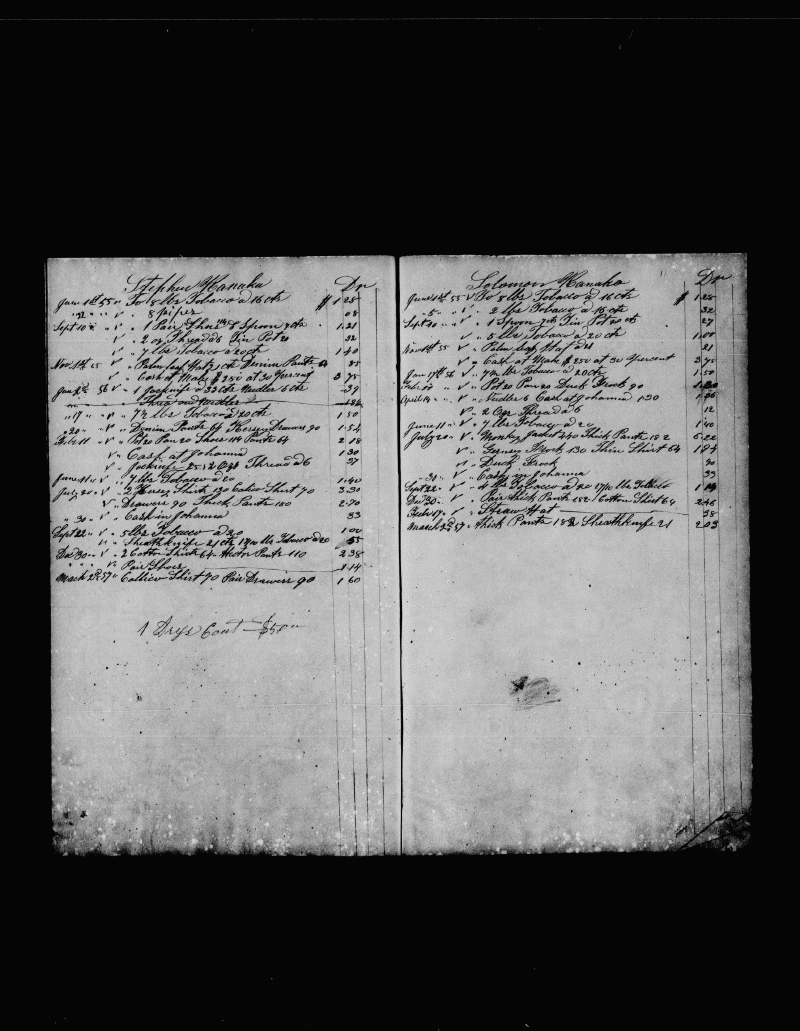 Stephen Kanaka Dr
June 1st 55 " V To 8 lbs Tobacco a 16 cts $ 1 28
" 12 " " V " 8 Pipes 08
Sept 10 " " V " 1 Pair Shoes 114 & Spoon 7 cts 1.21
V " 2 oz Thread a 6 Tin Pot 20 32
V " 7 lbs Tobacco a 20 cts 1 40
Nov. 1st 55 V " Palm leaf Hat 21 cts Denim Pants 64 85
V " Cash at Mahe $ 2 50 at 50 percent 3 75
Jan 56 V " 1 Jackknife a 33 cts Needles 6 cts 39
Thread and Needles
" 17 " " V " 7½ lbs Tobacco a 20 cts 1 50
" 20 " V " Denim Pants 64 Kersey Drawers 90 1.54
Feb. 11 " V " Pot 20 Pan 20 Shoes 114 Pants 64 2 18
V " Cash at Johanna 1 30
V " Jackknife 25 12 2 Ozs Thread a 6 37
June 11 " V " 7 lbs Tobacco a 20 1.40
July 20 " V " 2 Kersey Shirts 130 Calico Shirt 70 3.30
V " Drawers 90 Thick Pants 180 2.70
" 30 " V " Cash in Johanna 33
Sept 22 " V " 5 lbs Tobacco a 20 1 00
V " Sheathknife 21 cts 1 7/10 lbs Tobacco a 20 55
Dec 30 " V " 2 Cotton Shirts 64 Pants 110 2 38
" " " V " Pair Shoes 1.14
March 2d 57 " Callico Shirt 70 Pair Drawers 90 1 60
1 Drys Coat $5 00
Solomon Kanaka Dr
June 1st 55 V To 8 lbs Tobacco a 16 cts $ 1.28
" 5 " " V " 2 lbs Tobacco a 16 cts 32
Sept 10 " V " 1 Spoon 7 cts Tin Pot 20 cts 27
V " 5 lbs Tobacco a 20 cts 1.00
Nov 1st 55 V " Palm leaf Hat a 21 21
V " Cash at Mahe $ 2 50 at 50 percent 3 75
Jan 17th 56 V " 7½ lbs Tobacco a 20 cts 1.50
Feb. V " Pot 20 Pan 20 Duck Frock 90
April 14 " V " Needles 6 Cash at Johanna 1 30 1.36
V " 2 Ozs Thread a 6 12
June 11 " V " 7 lbs Tobacco a 20 1 40
July 20 " V " Monkey Jacket 440 Thick Pants 182 6.22
V " Gernsey Frock 130 Thin Shirt 64 1 94
V " Duck Frock 90
" 30 " V " Cash in Johanna 33
Sept 22 " V " 4 lbs Tobacco a 20 1 7/10 lbs Tobacco
Dec 30 " V " Pair thick Pants 182 Cotton Shirt 64 2.46
Feb 17 " V " Straw Hat 38
March 2d 57 " thick Pants 182 Sheathknife 21 2 03